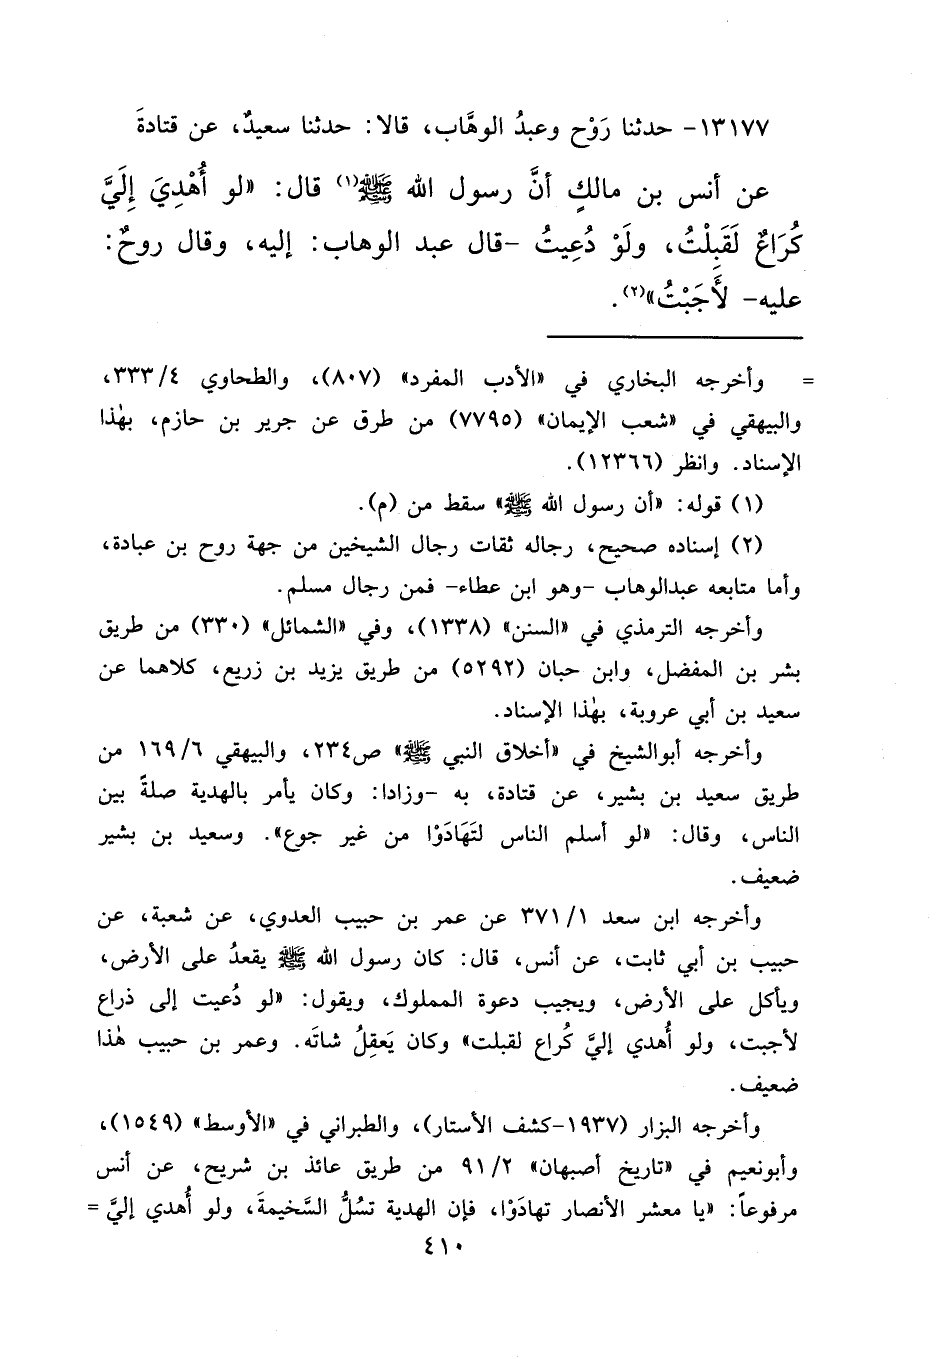 ١٣١٧٧- حدثنا رَوْح وعبدُ الوهَّاب، قالا: حدثنا سعيدٌ، عن قتادةَ
عن أنس بن مالكٍ أنَّ رسول الله ﷺ(١) قال: «لو أُهْدِيَ إِلَيَّ
كُرَاعٌ لَقَبِلْتُ، ولَوْ دُعِيتُ -قال عبد الوهاب: إليه، وقال روحٌ:
عليه- لأَجَبْتُ»(٢).
= وأخرجه البخاري في «الأدب المفرد» (٨٠٧)، والطحاوي ٣٣٣/٤،
والبيهقي في «شعب الإيمان» (٧٧٩٥) من طرق عن جرير بن حازم، بهٰذا
الإسناد. وانظر (١٢٣٦٦).
(١) قوله: «أن رسول الله ﷺ» سقط من (م).
(٢) إسناده صحيح، رجاله ثقات رجال الشيخين من جهة روح بن عبادة،
وأما متابعه عبدالوهاب -وهو ابن عطاء- فمن رجال مسلم.
وأخرجه الترمذي في «السنن» (١٣٣٨)، وفي «الشمائل» (٣٣٠) من طريق
بشر بن المفضل، وابن حبان (٥٢٩٢) من طريق يزيد بن زريع، كلاهما عن
سعيد بن أبي عروبة، بهٰذا الإسناد.
وأخرجه أبوالشيخ في «أخلاق النبي ﷺ» ص٢٣٤، والبيهقي ١٦٩/٦ من
طريق سعيد بن بشير، عن قتادة، به -وزادا: وكان يأمر بالهدية صلةً بين
الناس، وقال: «لو أسلم الناس لتَهَادَوْا من غير جوع». وسعيد بن بشير
ضعيف.
وأخرجه ابن سعد ٣٧١/١ عن عمر بن حبيب العدوي، عن شعبة، عن
حبيب بن أبي ثابت، عن أنس، قال: كان رسول الله ﷺ يقعدُ على الأرض،
ويأكل على الأرض، ويجيب دعوة المملوك، ويقول: «لو دُعيت إلى ذراع
لأجبت، ولو أُهدي إليَّ كُراع لقبلت» وكان يَعقِلُ شاتَه. وعمر بن حبيب هٰذا
ضعيف.
وأخرجه البزار (١٩٣٧-كشف الأستار)، والطبراني في «الأوسط» (١٥٤٩)،
وأبونعيم في «تاريخ أصبهان» ٩١/٢ من طريق عائذ بن شريح، عن أنس
مرفوعاً: «يا معشر الأنصار تهادَوْا، فإن الهدية تسُلُّ السَّخيمةَ، ولو أُهدي إليَّ =
٤١٠